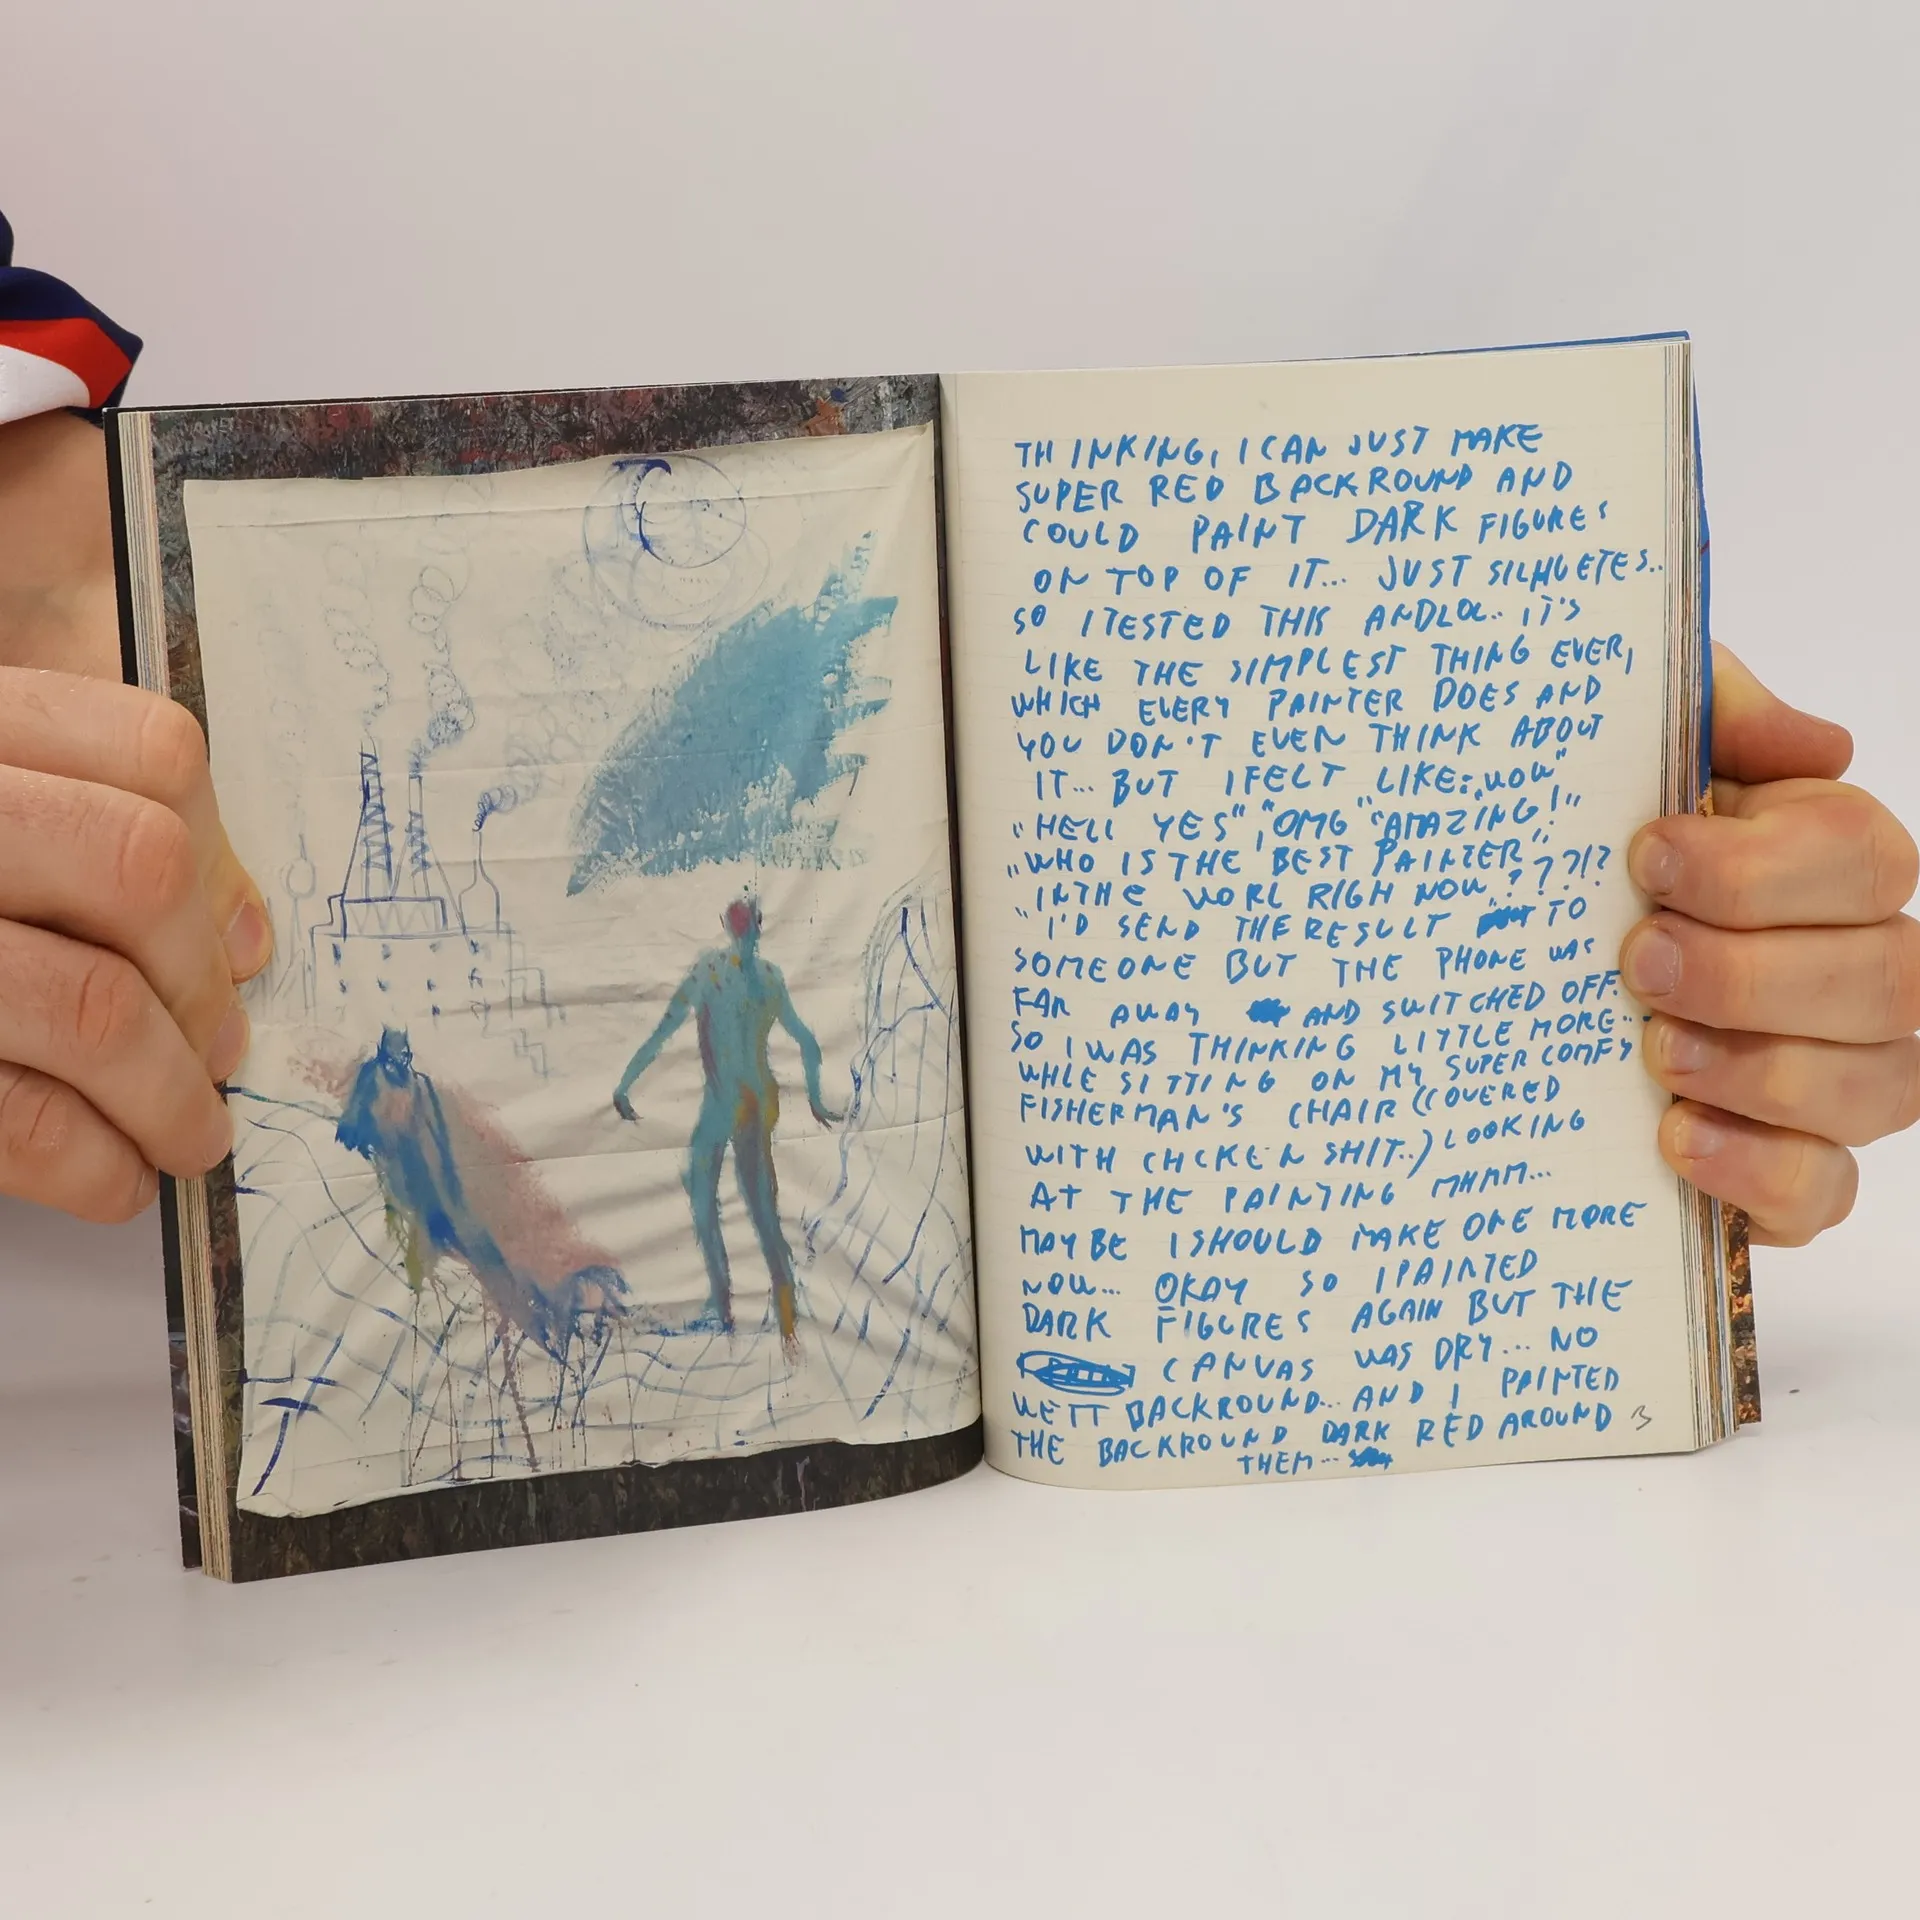 THINKING, I CAN JUST MAKE
SUPER RED BACKROUND AND
COULD PAINT DARK FIGURES
ON TOP OF IT... JUST SILHUETES..
SO I TESTED THIS AND LOL.. IT'S
LIKE THE SIMPLEST THING EVER,
WHICH EVERY PAINTER DOES AND
YOU DON'T EVEN THINK ABOUT
IT... BUT I FELT LIKE: „WOW"
„HELL YES", "OMG" "AMAZING!"
„WHO IS THE BEST PAINTER"
"IN THE WORL RIGH NOW"????!?
"I'D SEND THE RESULT TO
SOMEONE BUT THE PHONE WAS
FAR AWAY AND SWITCHED OFF.
SO I WAS THINKING LITTLE MORE...
WHLE SITTING ON MY SUPER COMFY
FISHERMAN'S CHAIR (COVERED
WITH CHCKEN SHIT..) LOOKING
AT THE PAINTING MHMM...
MAYBE I SHOULD MAKE ONE MORE
NOW... OKAY SO I PAINTED
DARK FIGURES AGAIN BUT THE
CANVAS WAS DRY... NO
WETT BACKROUND... AND I PAINTED
THE BACKROUND DARK RED AROUND
THEM...